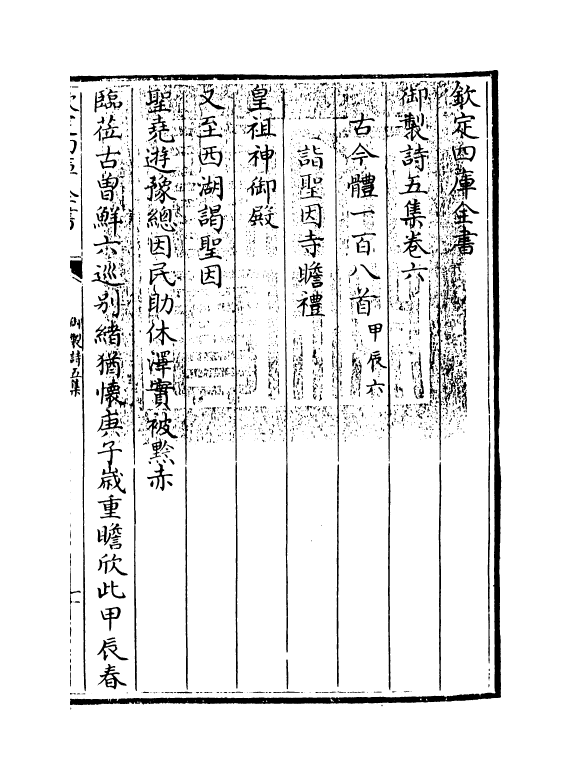 欽定四庫全書
御製詩五集卷六
古今體一百八首甲辰六
詣聖因寺瞻禮
皇祖神御殿
又至西湖謁聖因
聖堯遊豫總因民助休澤實被黔赤
臨莅古曽鮮六巡别緒猶懐庚子嵗重瞻欣此甲辰春
御製詩五集